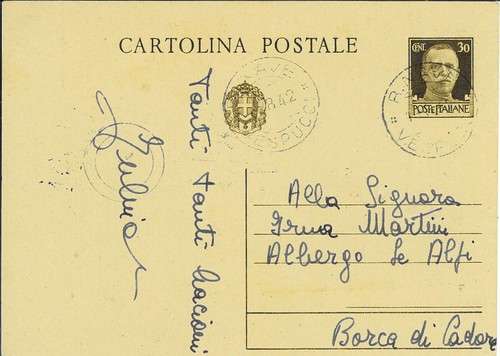 CARTOLINA POSTALE
CENT. 30
POSTE ITALIANE
NAVE
8.42
VESPUCCI
Tanti tanti bacioni
Alla Signora
Irma Martini
Albergo Le Alpi
Borca di Cadore